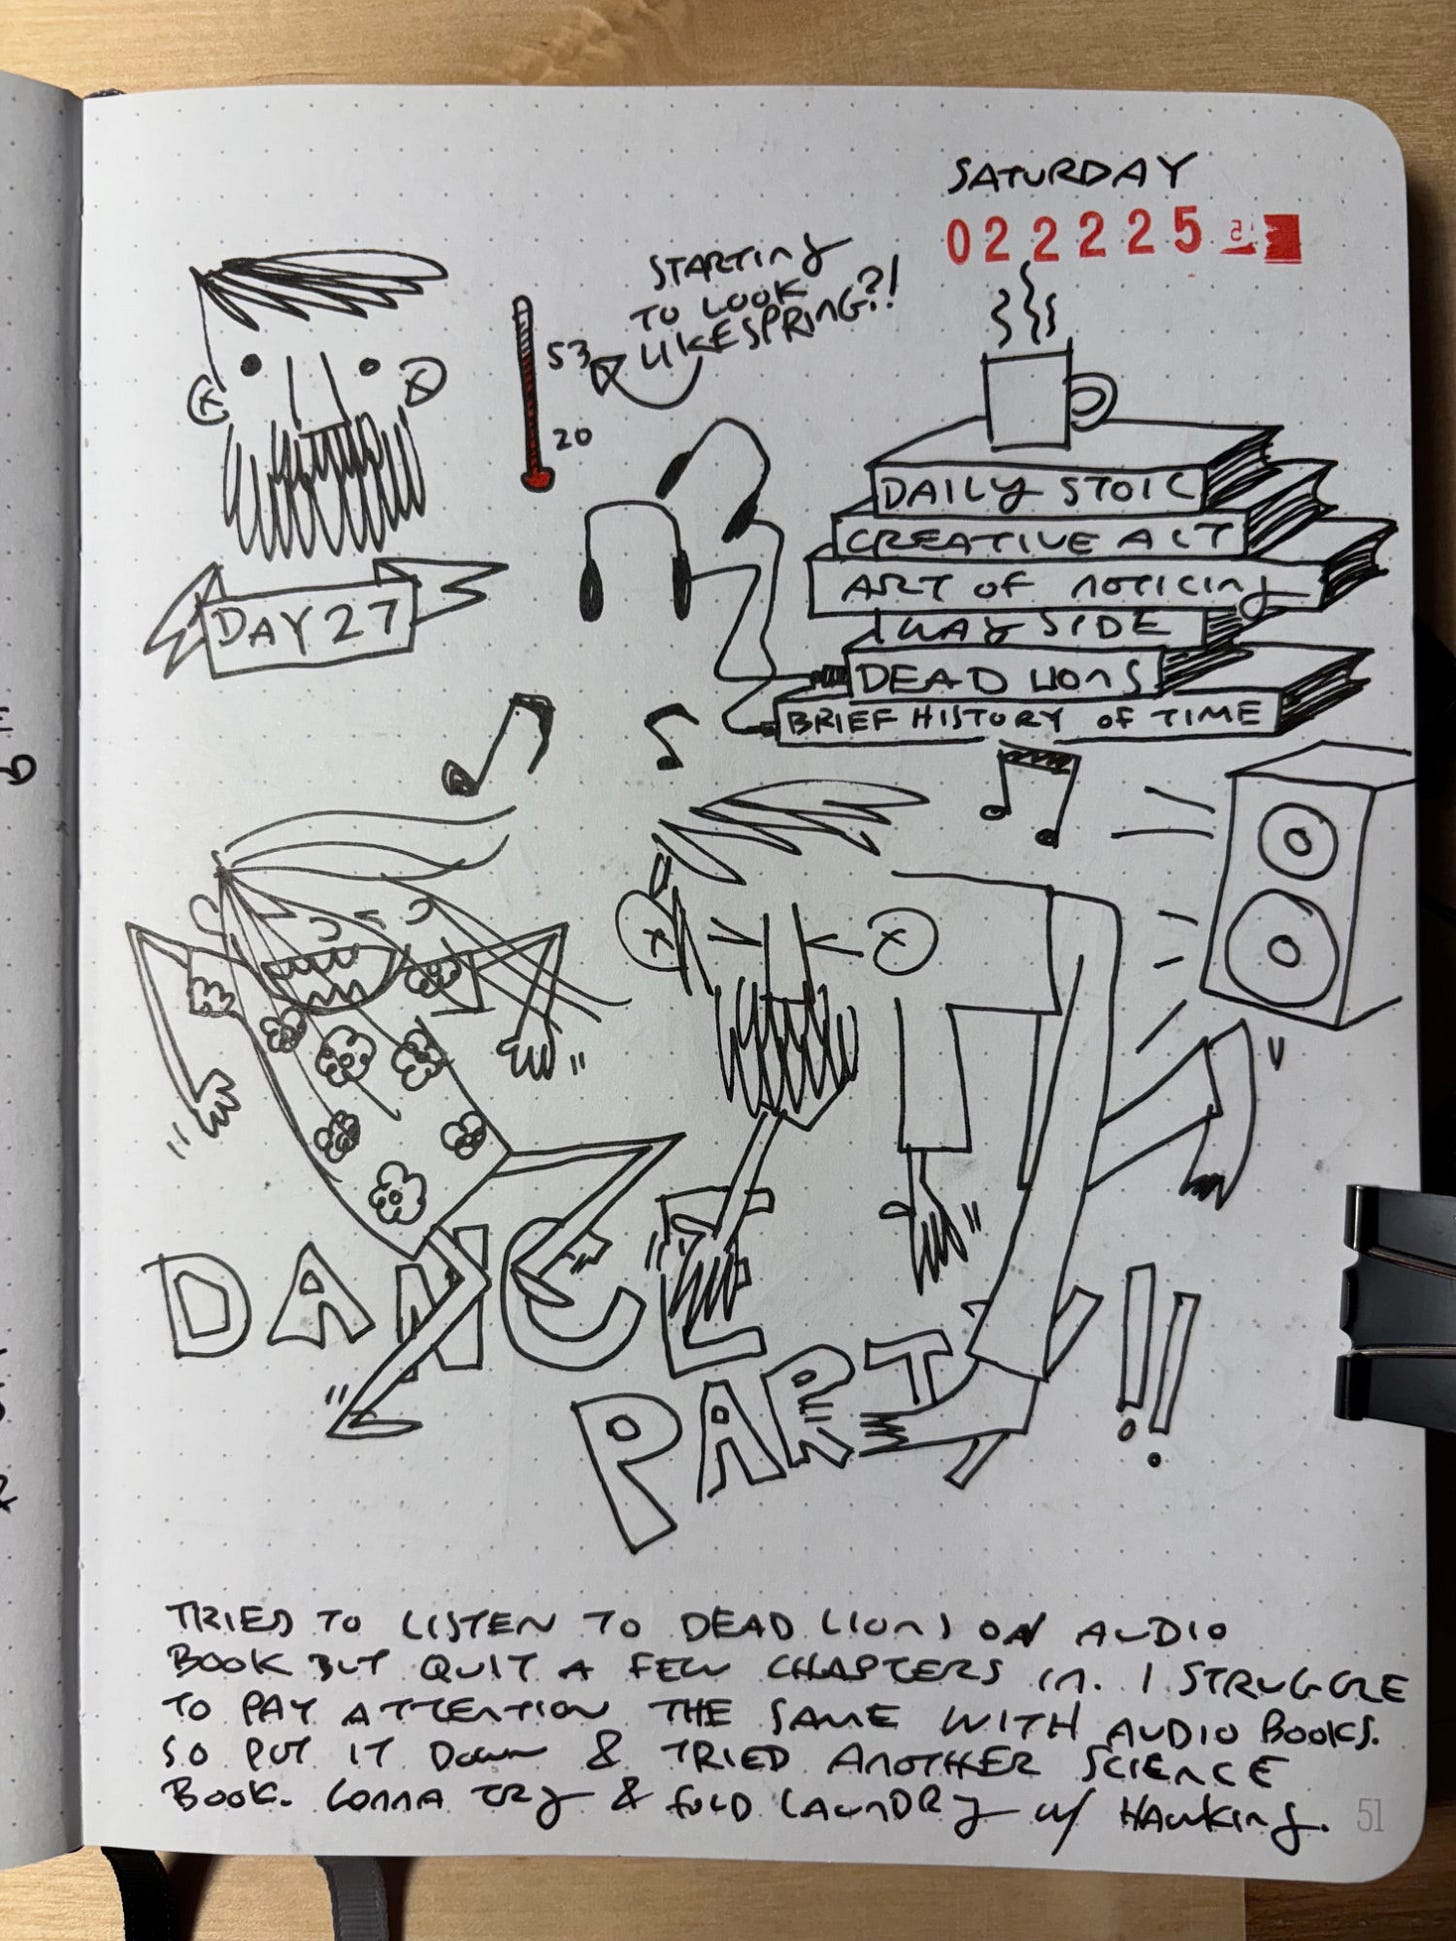 SATURDAY
022225
STARTING
TO LOOK
LIKE SPRING?!
53
20
DAY 27
DAILY STOIC
CREATIVE ACT
ART OF NOTICING
WAYSIDE
DEAD LIONS
BRIEF HISTORY OF TIME
DANCE
PARTY!!
TRIED TO LISTEN TO DEAD LIONS ON AUDIO
BOOK BUT QUIT A FEW CHAPTERS IN. I STRUGGLE
TO PAY ATTENTION THE SAME WITH AUDIO BOOKS.
SO PUT IT DOWN & TRIED ANOTHER SCIENCE
BOOK. GONNA TRY & FOLD LAUNDRY W/ HAWKING.
51